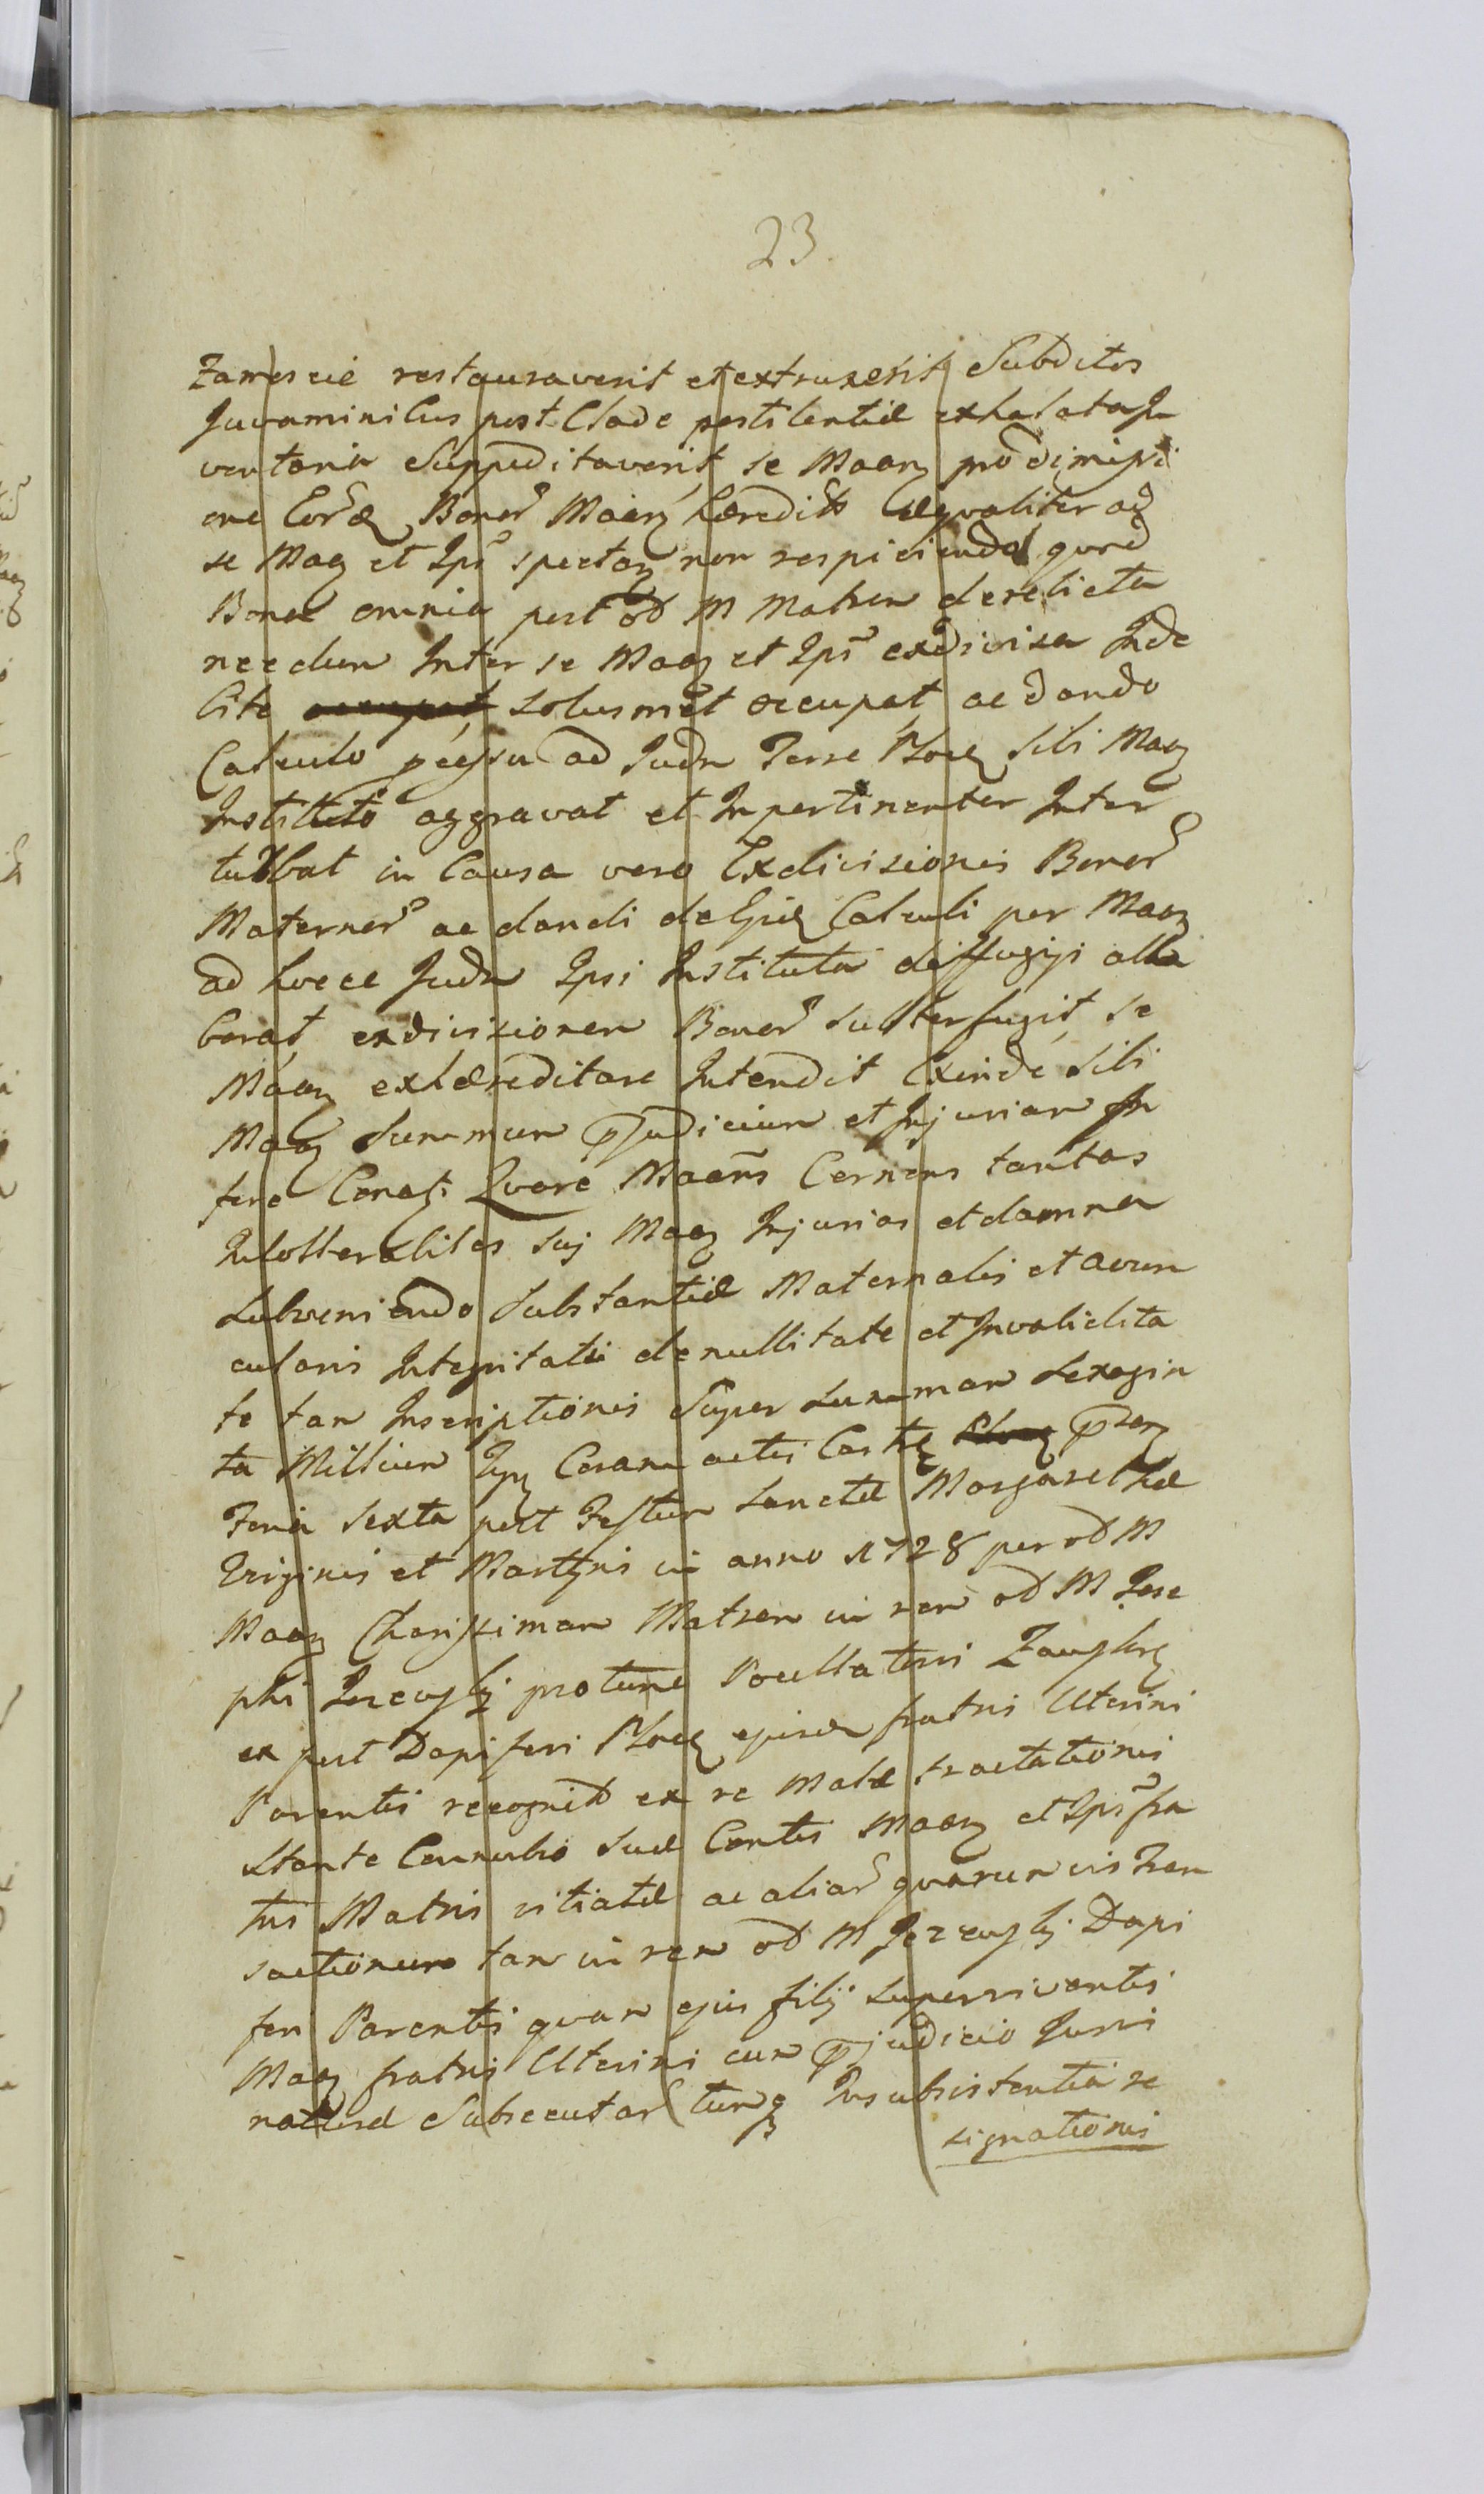 23
Zamoscie restauraverit et extruxerit Subditos
Juvaminibus post Clade pestilentiæ exhalata In
ventaria Suppeditaverit se Maoz pro dimissi
one Bonor Maoz hæredit æqvaliter ad
se Maoz et Ips spectaz non respiciendo qvod
Bona omnia post od M Matrem derelicta
necdum Inter se Maoz et Ips exdivisa Inde
bite solusmet occupat ac dando
Calculo ad Judm Terre Plocz sibi Maoz
Instituto aggravat et Inpertinenter Inter
turbat in Causa vero Exdivisionis Bonor
Maternor ac dandi de Calculi per Maoz
ad hocce Judm Ipsi Instituta diffugiji alla
borat exdivisionem Bonor subterfugit se
Maoz exhæreditare Intendit Exinde Sibi
Maoz Summum pjudicium et Injuriam In
fere Conat Qvare Maons Cernens tantas
suj Maoz Injurias et damna
Subveniendo Substantiæ Maternalis et avun
cularis Integritati de nullitate et Invalidita
te tam Inscriptionis Super Summam Sexagin
ta Millium Coram actis Castr psen
Feria Sexta post Festum Sanctæ Margarethæ
Virginis et Martyris in anno 1728 per od M
Maoz Charissimam Matrem in rem od M Jose
phi protunc Pocillatoris
ex post Dapiferi Plocz fratris Uterini
Parentis recognit ex re Malæ tractationis
Stante Connubio Suæ Contis Maoz et Ips fra
tris Matris vitiatæ ac aliar qvarumvis Tran
sactionum tam in rem od M Dapi
feri Parentis qvam ejus filij superviventis
Maoz fratris Uterini cum pjudicio Juris
naturæ Subsecutar tumq Insubsistentia re
signationis